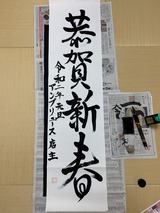 恭賀新春
令和二年 元旦
アンブリュース 店主